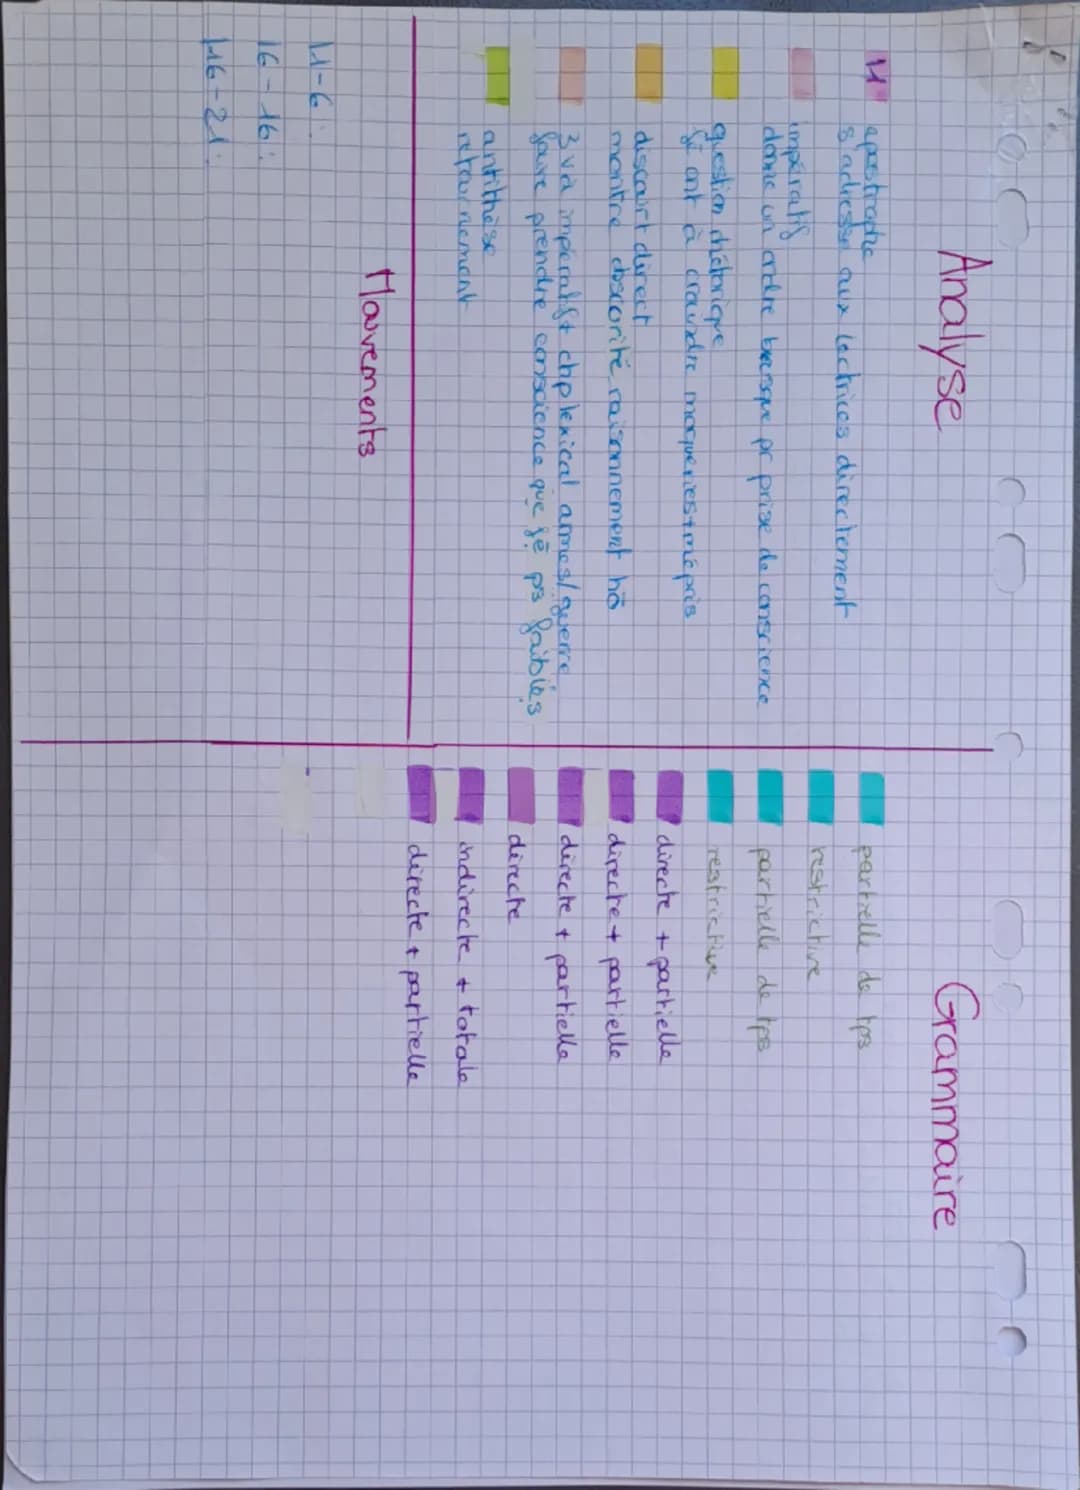 Analyse
M
apostrophe
s'adresse aux lectrices directement
impératif
donne un ordre brusque pr prise de conscience
question rhétorique
fē ont à craindre moqueries+mépris
discourt direct
montre absurité raisonnement hō
3 v à impératif+ chp lexical armes/guerre
faire prendre conscience que fē ps faibles
antithèse
retournement
Mouvements
l1-6:
l6-16:
l16-21:
Grammaire
partielle de tps
restrictive
partielle de tps
restrictive
directe + partielle
directe + partielle
directe + partielle
directe
indirecte + totale
directe + partielle